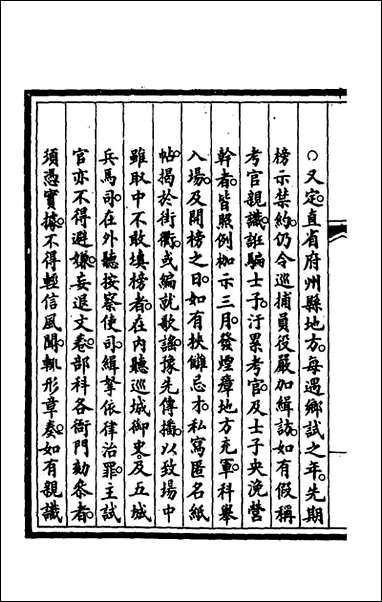 ○又定直省府州縣地方每遇鄉試之年先期
榜示禁約仍令巡捕員役嚴加緝訪如有假稱
考官親識誑騙士子汙累考官及士子央浼營
幹者皆照例枷示三月發煙瘴地方充軍科舉
入場及開榜之日如有挾讎忌才私寫匿名紙
帖揭於街衢或編就歌謠豫先傳播以致場中
雖取中不敢填榜者在內聽巡城御史及五城
兵馬司在外聽按察使司緝拏依律治罪主試
官亦不得避嫌妄退文卷部科各衙門劾參者
須憑實據不得輕信風聞輒形章奏如有親識